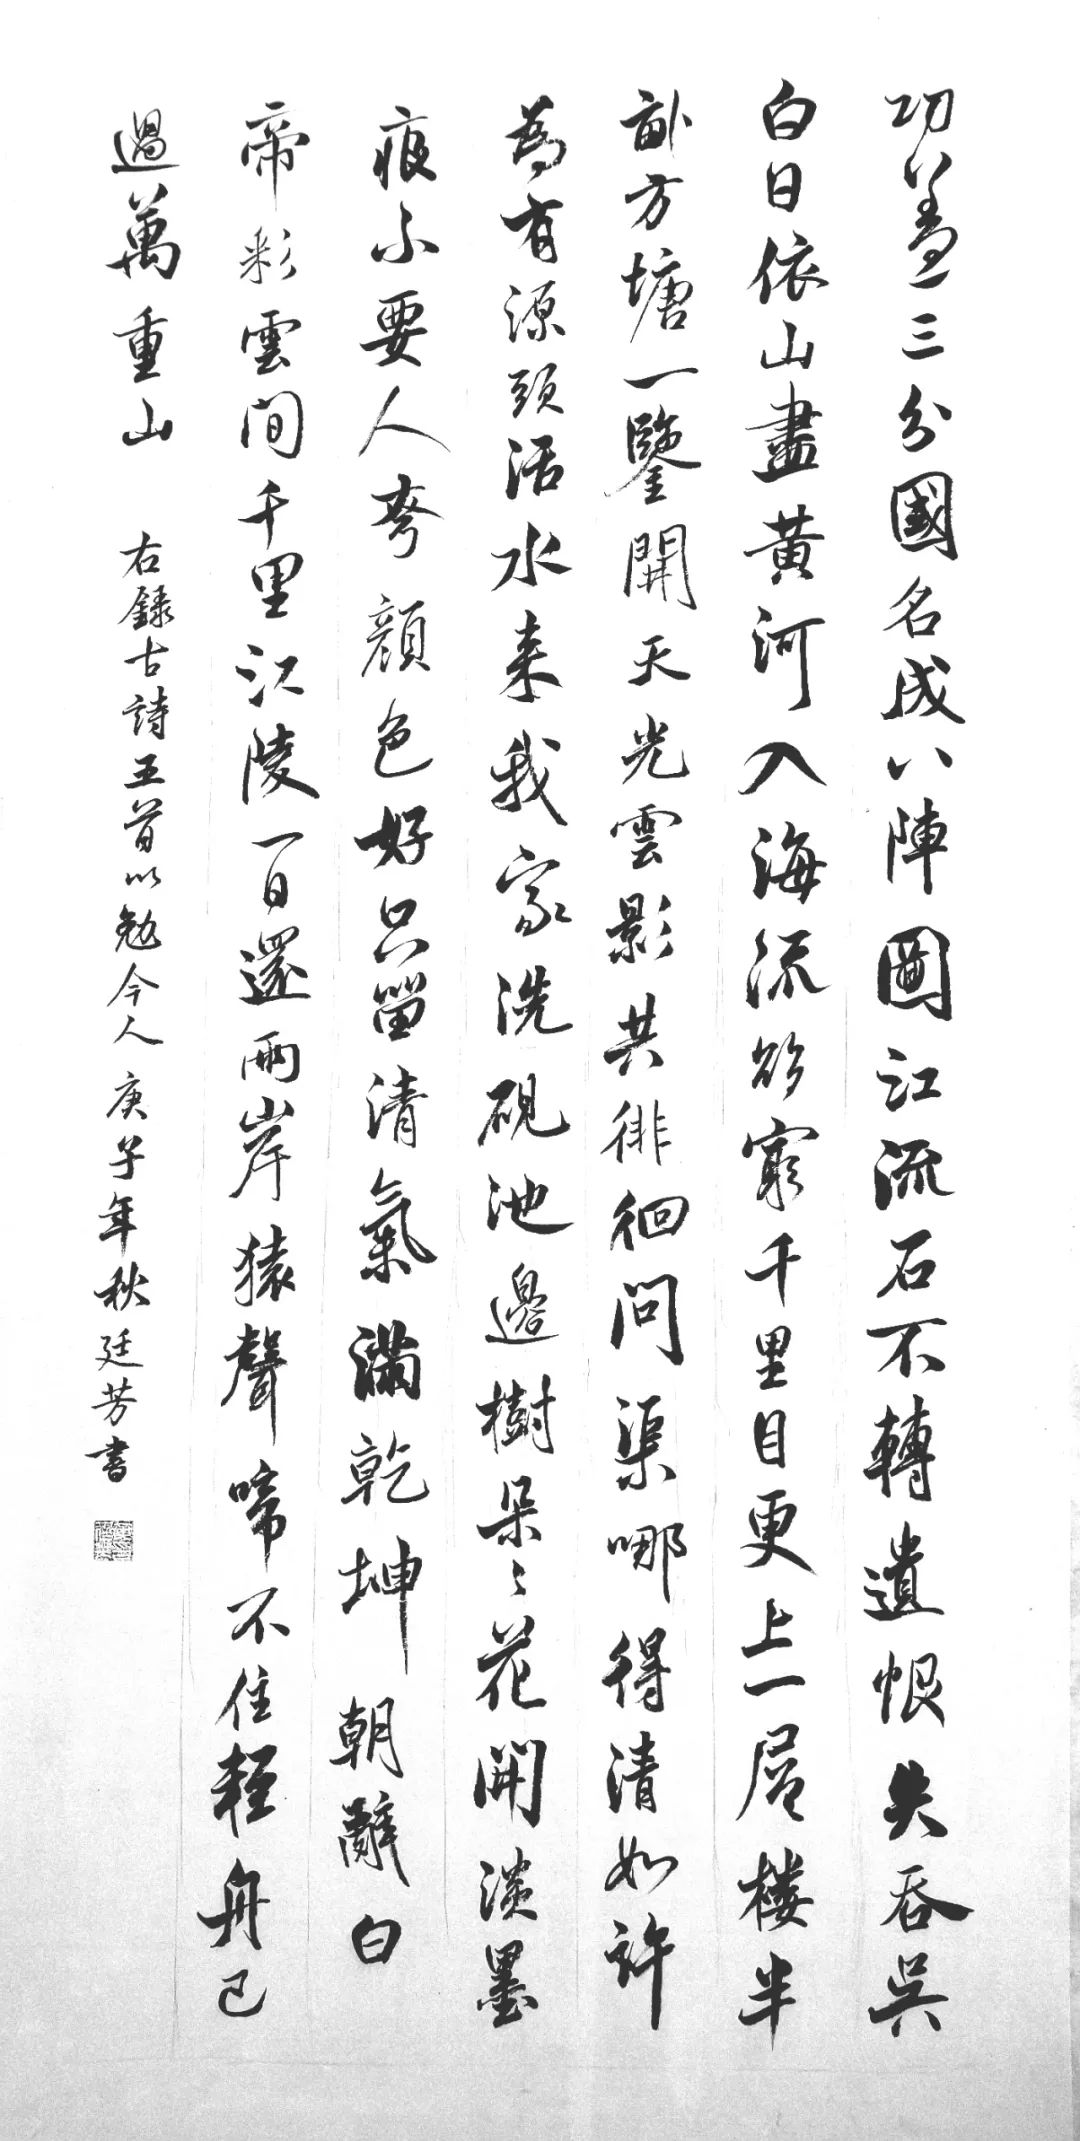 功蓋三分國名成八陣圖江流石不轉遺恨失吞吳
白日依山盡黃河入海流欲窮千里目更上一層樓半
畝方塘一鑒開天光雲影共徘徊問渠哪得清如許
為有源頭活水来我家洗硯池邊樹朵〻花開淡墨
痕不要人夸顏色好只留清氣滿乾坤朝辭白
帝彩雲間千里江陵一日還兩岸猿聲啼不住輕舟已
過萬重山 右錄古詩五首以勉今人庚子年秋廷芳書